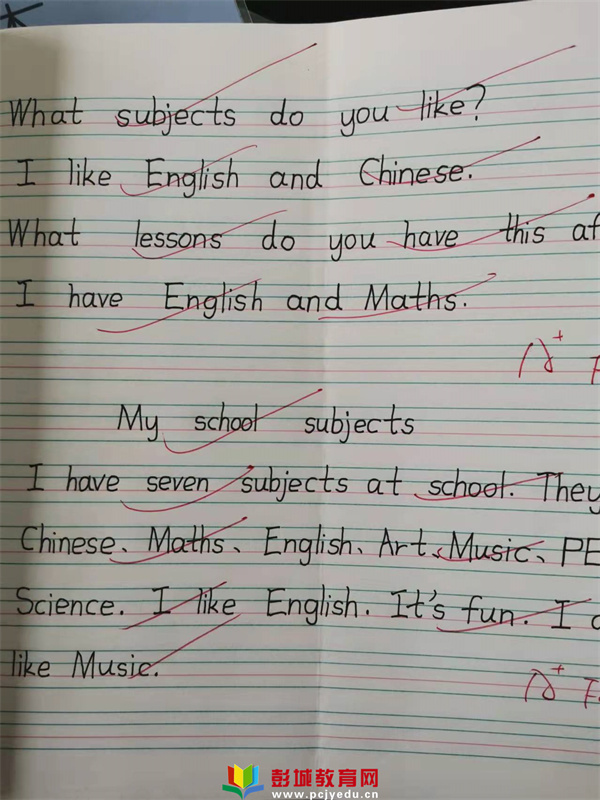 What subjects do you like?
I like English and Chinese.
What lessons do you have this af
I have English and Maths.
A+
My school subjects
I have seven subjects at school. They
Chinese、Maths、English、Art、Music、PE
Science. I like English. It's fun. I
like Music.
A+
彭城教育网
www.pcjyedu.cn